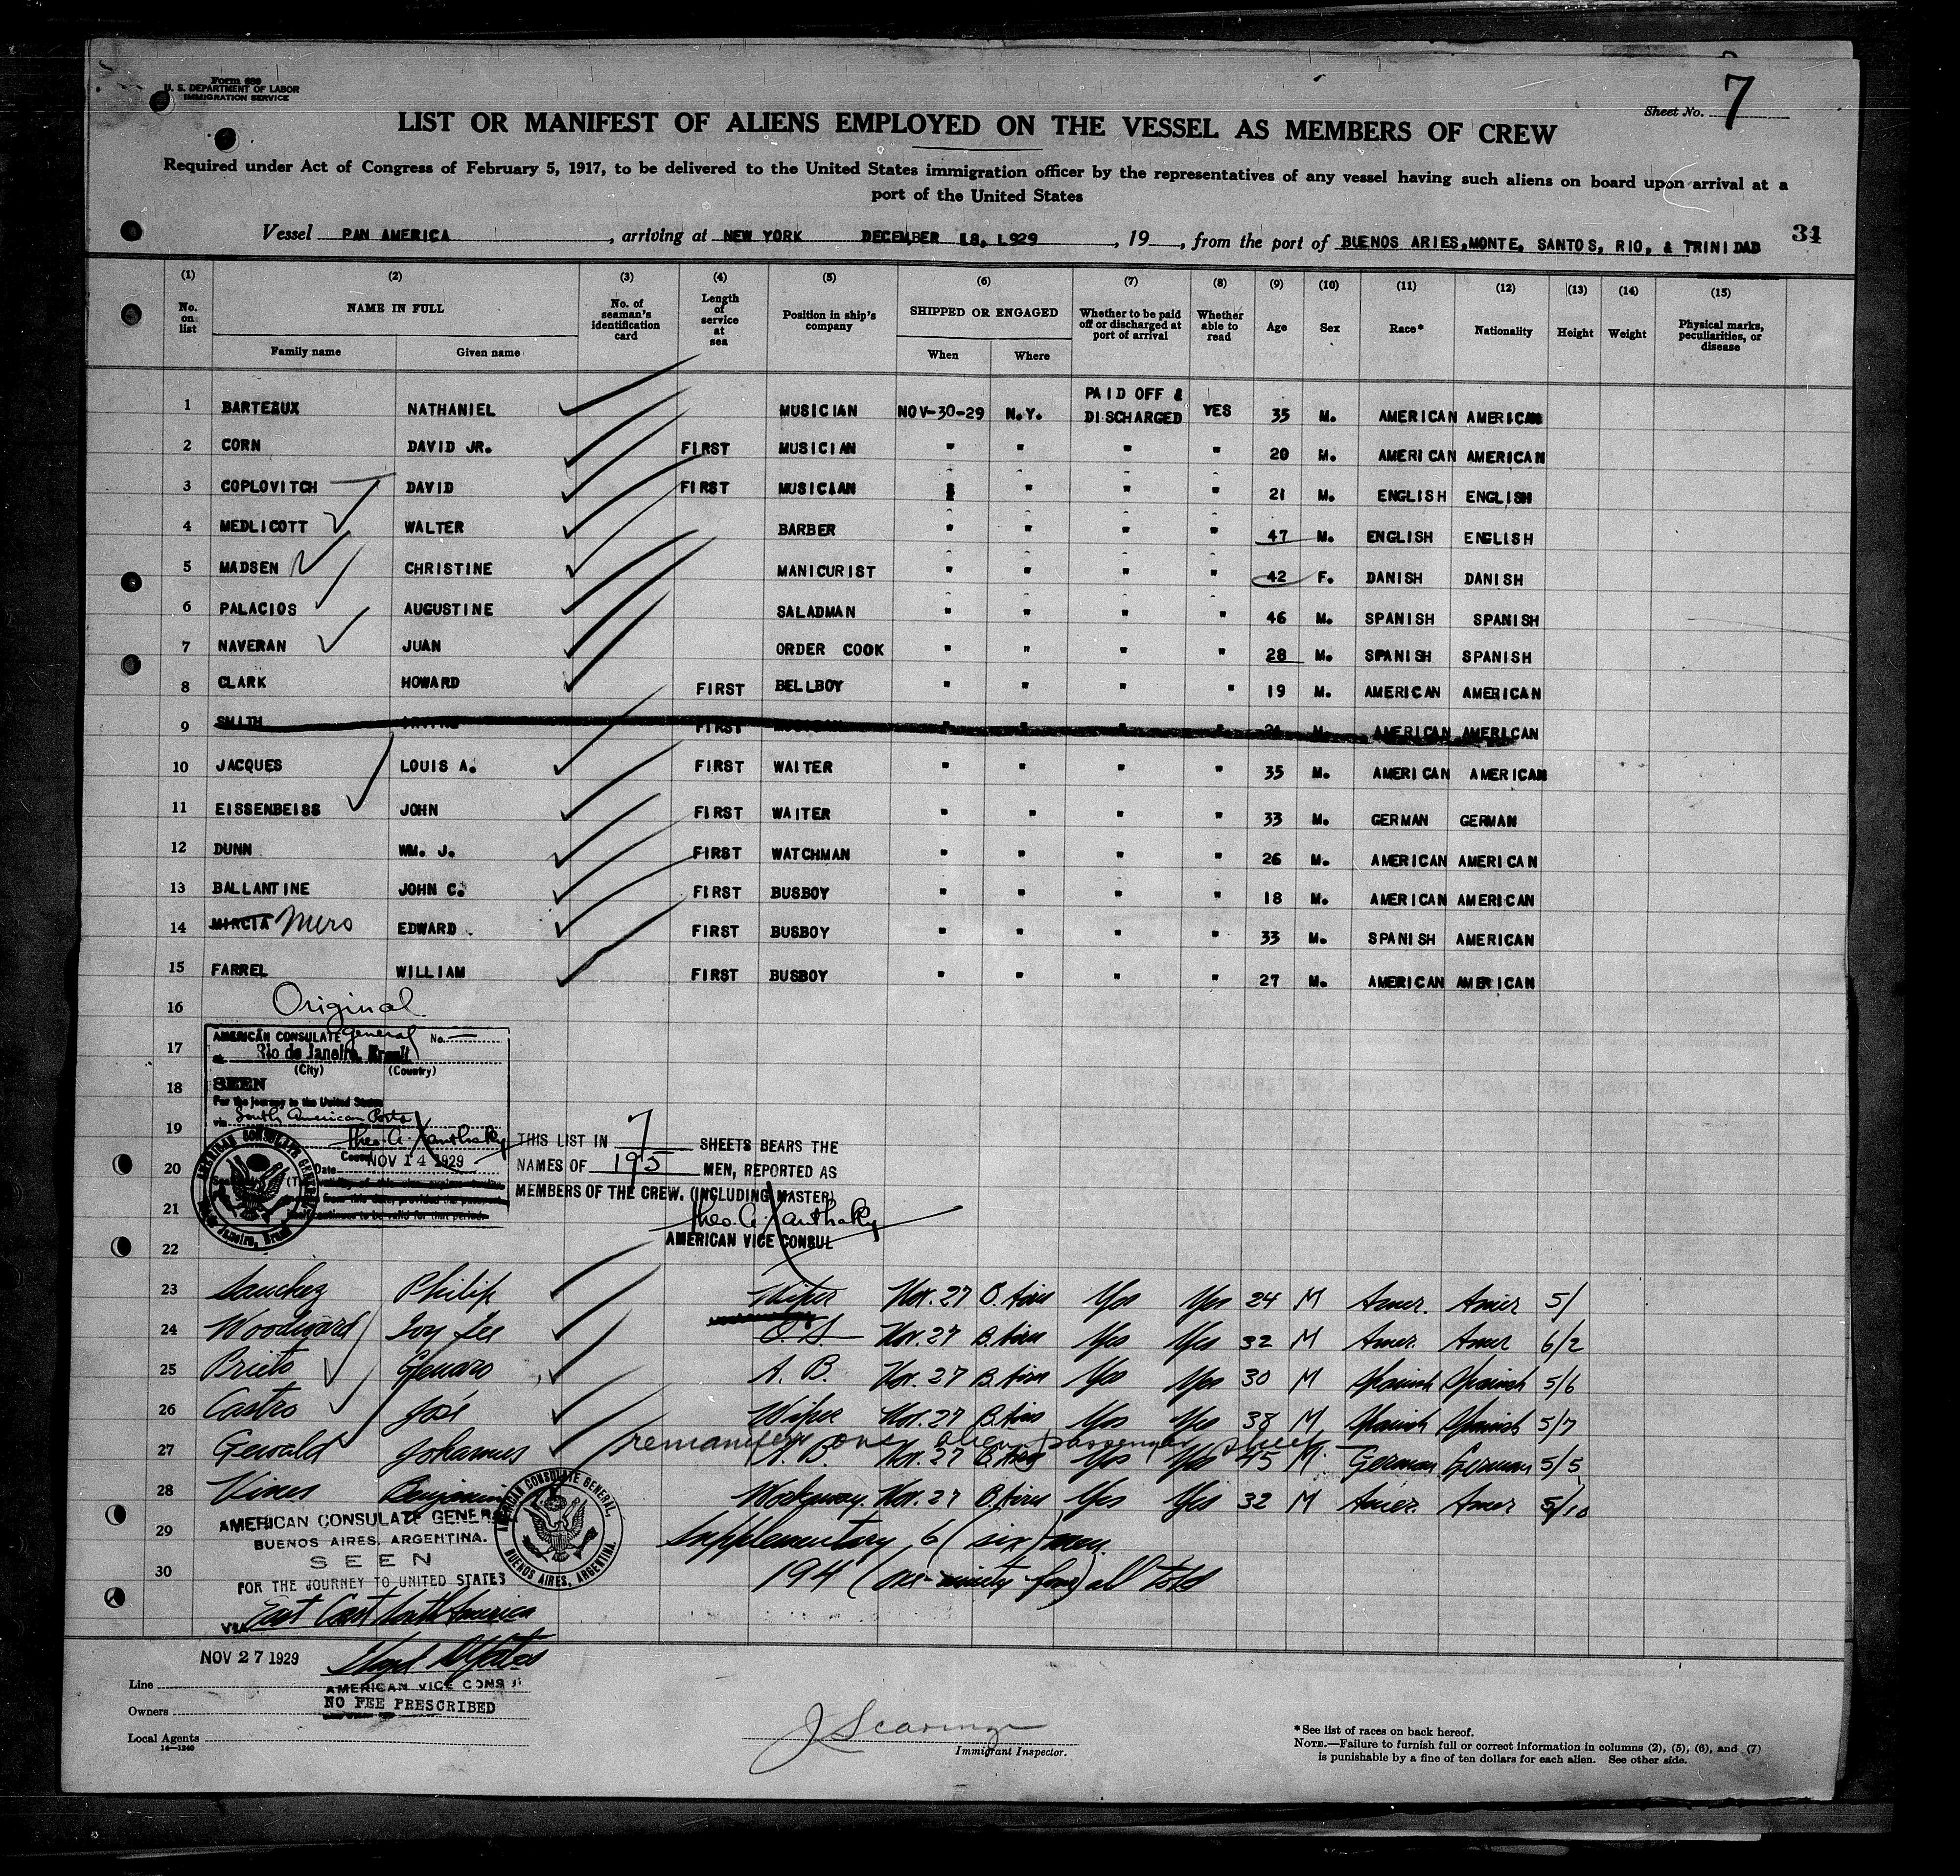 Form 689
U. S. DEPARTMENT OF LABOR
IMMIGRATION SERVICE
Sheet No. 7
LIST OR MANIFEST OF ALIENS EMPLOYED ON THE VESSEL AS MEMBERS OF CREW
Required under Act of Congress of February 5, 1917, to be delivered to the United States immigration officer by the representatives of any vessel having such aliens on board upon arrival at a
port of the United States
Vessel PAN AMERICA, arriving at NEW YORK DECEMBER 18, 1929, 19, from the port of BUENOS ARIES, MONTE, SANTOS, RIO, & TRINIDAD 31
(1) (2) (3) (4) (5) (6) (7) (8) (9) (10) (11) (12) (13) (14) (15)
No. on list NAME IN FULL No. of seaman's identification card Length of service at sea Position in ship's company SHIPPED OR ENGAGED Whether to be paid off or discharged at port of arrival Whether able to read Age Sex Race* Nationality Height Weight Physical marks, peculiarities, or disease
Family name Given name When Where
1 BARTEAUX NATHANIEL MUSICIAN NOV-30-29 N.Y. PAID OFF & DISCHARGED YES 35 M. AMERICAN AMERICAN
2 CORN DAVID JR. FIRST MUSICIAN " " " " 20 M. AMERICAN AMERICAN
3 COPLOVITCH DAVID FIRST MUSICIAN " " " " 21 M. ENGLISH ENGLISH
4 MEDLICOTT WALTER BARBER " " " " 47 M. ENGLISH ENGLISH
5 MADSEN CHRISTINE MANICURIST " " " " 42 F. DANISH DANISH
6 PALACIOS AUGUSTINE SALADMAN " " " " 46 M. SPANISH SPANISH
7 NAVERAN JUAN ORDER COOK " " " " 28 M. SPANISH SPANISH
8 CLARK HOWARD FIRST BELLBOY " " " " 19 M. AMERICAN AMERICAN
9 SMITH IRVING FIRST MUSICIAN " " " " 21 M. AMERICAN AMERICAN
10 JACQUES LOUIS A. FIRST WAITER " " " " 35 M. AMERICAN AMERICAN
11 EISSENBEISS JOHN FIRST WAITER " " " " 33 M. GERMAN GERMAN
12 DUNN WM. J. FIRST WATCHMAN " " " " 26 M. AMERICAN AMERICAN
13 BALLANTINE JOHN C. FIRST BUSBOY " " " " 18 M. AMERICAN AMERICAN
14 MIRCIA Mero EDWARD FIRST BUSBOY " " " " 33 M. SPANISH AMERICAN
15 FARREL WILLIAM FIRST BUSBOY " " " " 27 M. AMERICAN AMERICAN
16 Original
17 AMERICAN CONSULATE General No.
at Rio de Janeiro, Brazil
(City) (Country)
18 SEEN
For the journey to the United States
via South American Ports
19 Theo. A. Xanthaky
Date NOV 14 1929
THIS LIST IN 7 SHEETS BEARS THE
20 NAMES OF 195 MEN, REPORTED AS
MEMBERS OF THE CREW. (INCLUDING MASTER)
21 Theo. A. Xanthaky
22 AMERICAN VICE CONSUL
23 Sanchez Philip Wiper Nov. 27 B. Aires Yes Yes 24 M Amer. Amer 5/
24 Woodward Ivy Lee O. S. Nov. 27 B. Aires Yes Yes 32 M Amer. Amer 6/2
25 Prieto Genaro A. B. Nov. 27 B. Aires Yes Yes 30 M Spanish Spanish 5/6
26 Castro José Wiper Nov. 27 B. Aires Yes Yes 38 M Spanish Spanish 5/7
remanifest one alien passenger sheet
27 Gewald Johannes A. B. Nov. 27 B. Aires Yes Yes 45 M. German German 5/5
28 Vines Benjamin Workaway Nov. 27 B. Aires Yes Yes 32 M Amer. Amer 5/10
29 Supplementary 6 (six) men
30 194 (one-ninety-four) all told
AMERICAN CONSULATE GENERAL
BUENOS AIRES, ARGENTINA.
SEEN
FOR THE JOURNEY TO UNITED STATES
VIA East Coast North America
AMERICAN CONSULATE GENERAL, BUENOS AIRES, ARGENTINA.
NOV 27 1929
AMERICAN VICE CONSUL
NO FEE PRESCRIBED
Line
Owners
Local Agents
14—1240
Immigrant Inspector.
*See list of races on back hereof.
NOTE.—Failure to furnish full or correct information in columns (2), (5), (6), and (7)
is punishable by a fine of ten dollars for each alien. See other side.